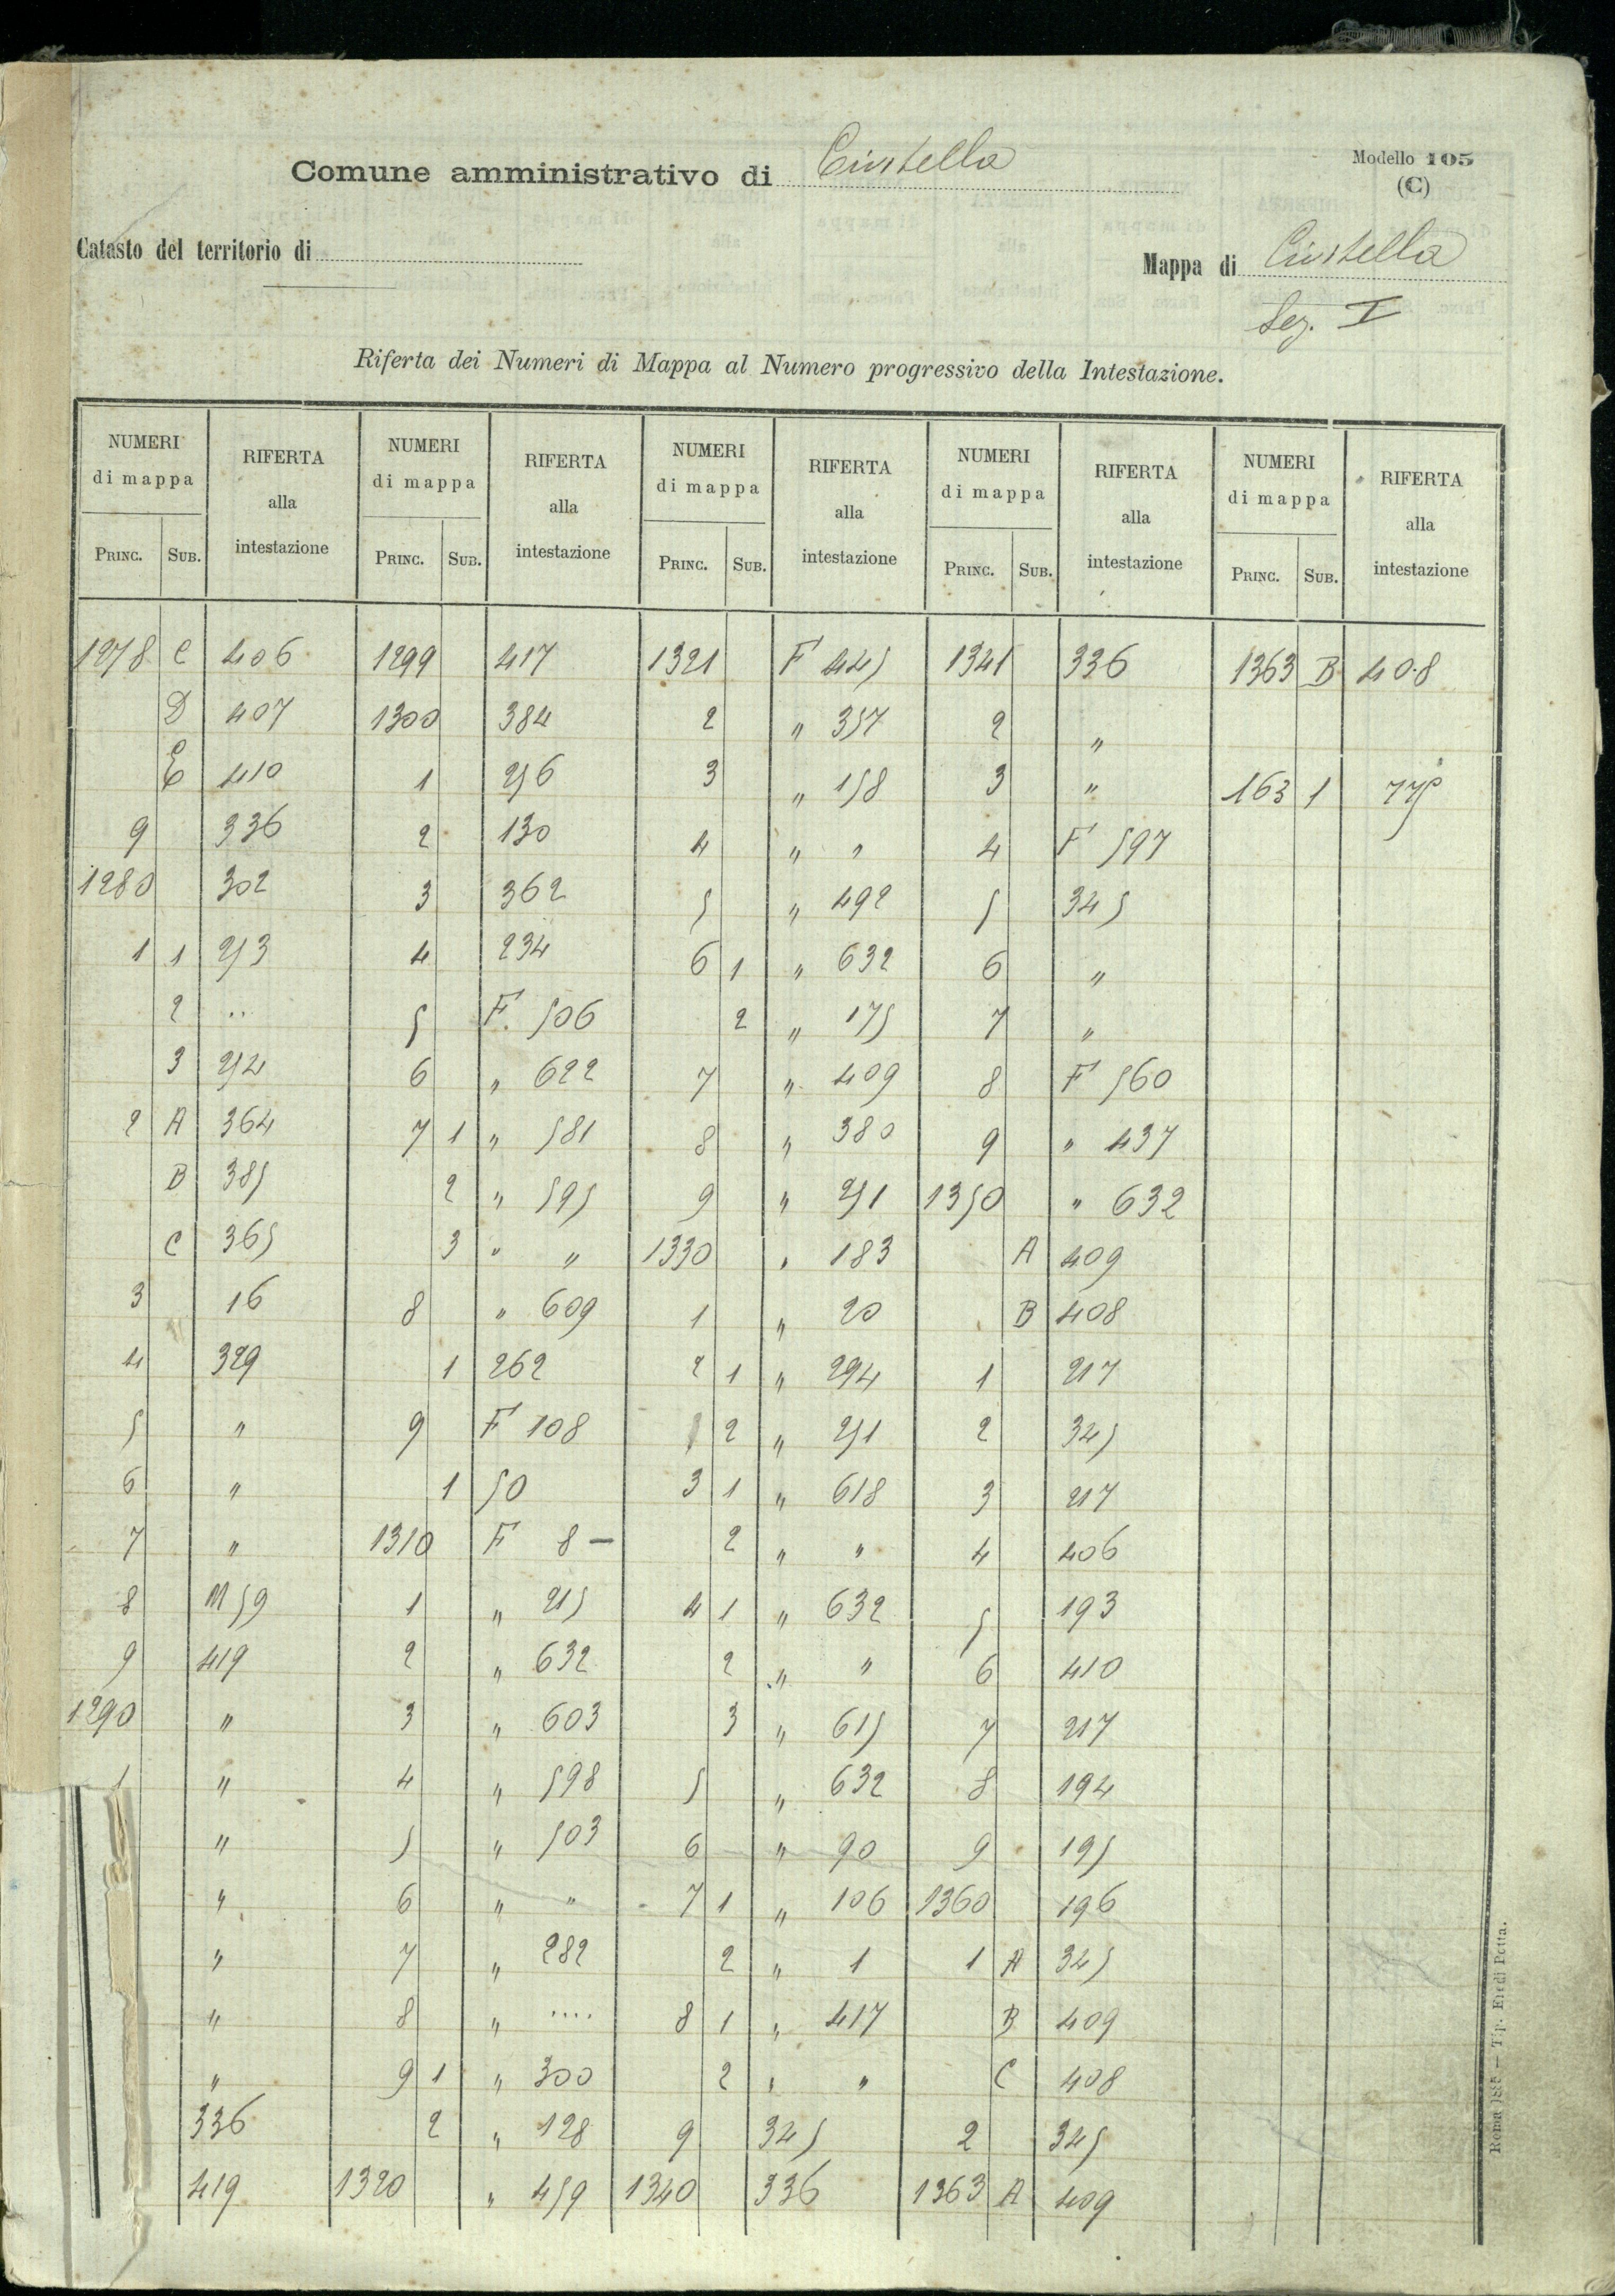 Modello 105
(C)
Comune amministrativo di Civitella
Catasto del territorio di
Mappa di Civitella
Sez. I
Riferta dei Numeri di Mappa al Numero progressivo della Intestazione.
NUMERI di mappa RIFERTA alla intestazione NUMERI di mappa RIFERTA alla intestazione NUMERI di mappa RIFERTA alla intestazione NUMERI di mappa RIFERTA alla intestazione NUMERI di mappa RIFERTA alla intestazione
PRINC. SUB. PRINC. SUB. PRINC. SUB. PRINC. SUB. PRINC. SUB.
1278 C 406 1299 417 1321 F 445 1341 336 1363 B 408
D 407 1300 384 2 " 357 2 "
E 410 1 256 3 " 158 3 " 163 1
9 336 2 130 4 " " 4 F 597
1280 302 3 362 5 " 492 5 345
1 1 253 4 234 6 1 " 632 6 "
2 .. 5 F. 506 2 " 175 7 "
3 254 6 " 622 7 " 409 8 F 560
2 A 364 7 1 " 581 8 " 380 9 " 437
B 385 2 " 595 9 " 251 1350 " 632
C 365 3 " " 1330 " 183 A 409
3 16 8 " 609 1 " 20 B 408
4 329 1 262 2 1 " 294 1 217
5 " 9 F 108 2 " 251 2 345
6 " 1 50 3 1 " 618 3 217
7 " 1310 F 8 — 2 " " 4 406
8 M 59 1 " 215 4 1 " 632 5 193
9 419 2 " 632 2 " " 6 410
1290 " 3 " 603 3 " 615 7 217
1 " 4 " 598 5 " 632 8 194
" 5 " 503 6 " 90 9 195
" 6 " " 7 1 " 106 1360 196
" 7 " 282 2 " 1 1 A 345
" 8 " .... 8 1 " 417 B 409
" 9 1 " 300 2 " " C 408
336 2 " 128 9 345 2 345
419 1320 " 459 1340 336 1363 A 409
Roma 1885 — Tip. Eredi Botta.